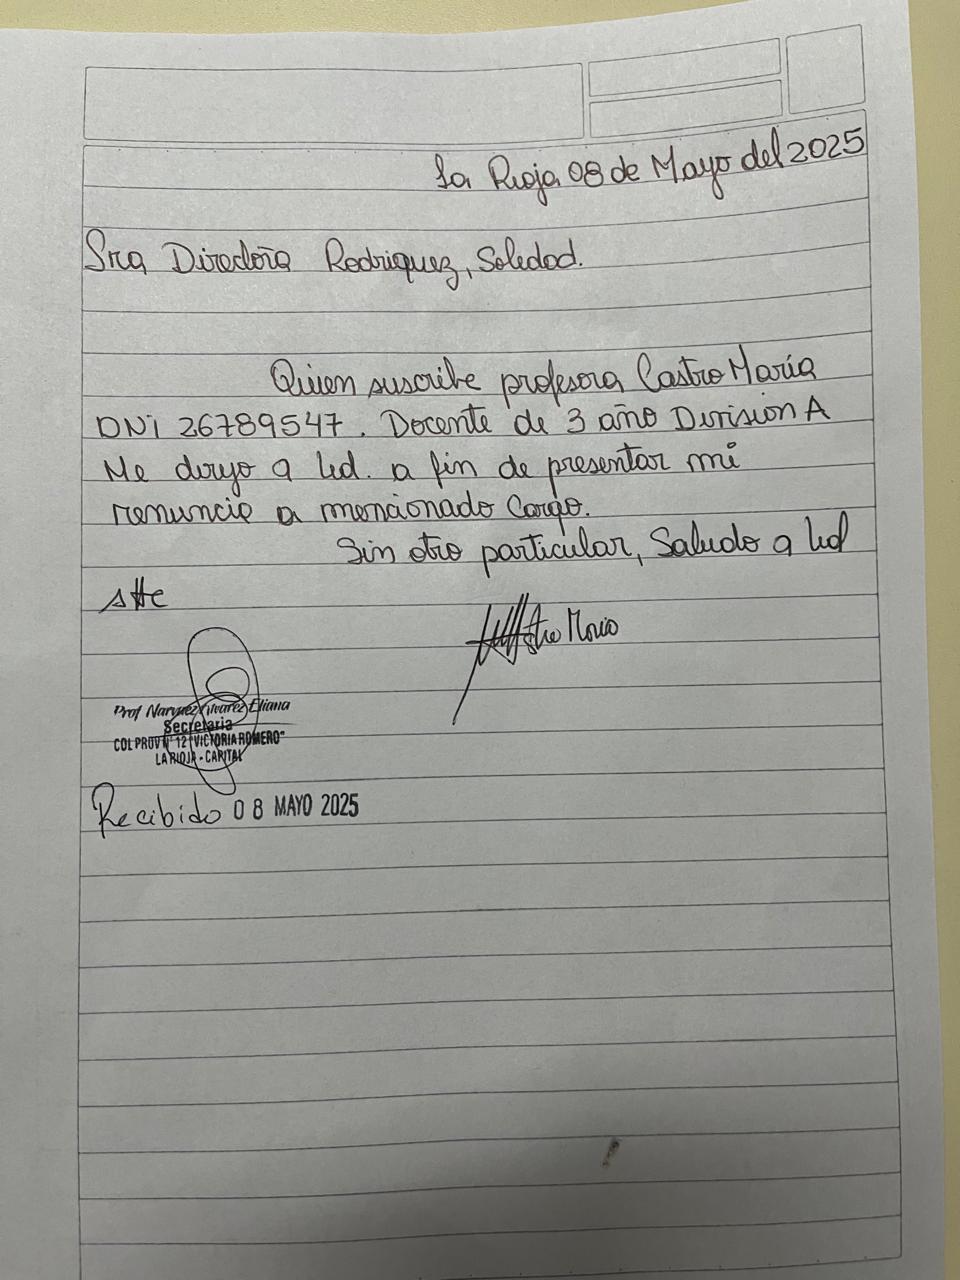 La Rioja 08 de Mayo del 2025
Sra Directora Rodriquez, Soledad.
Quien suscribe profesora Castro María
DNi 26789547. Docente de 3 año Division A
Me dirijo a Ud. a fin de presentar mi
renuncia a mencionado Cargo.
Sin otro particular, Saludo a Ud
Atte
Castro Maria
Prof Narvaez Alvarez Eliana
Secretaria
COL PROV N° 12 "VICTORIA ROMERO"
LA RIOJA - CAPITAL
Recibido 08 MAYO 2025